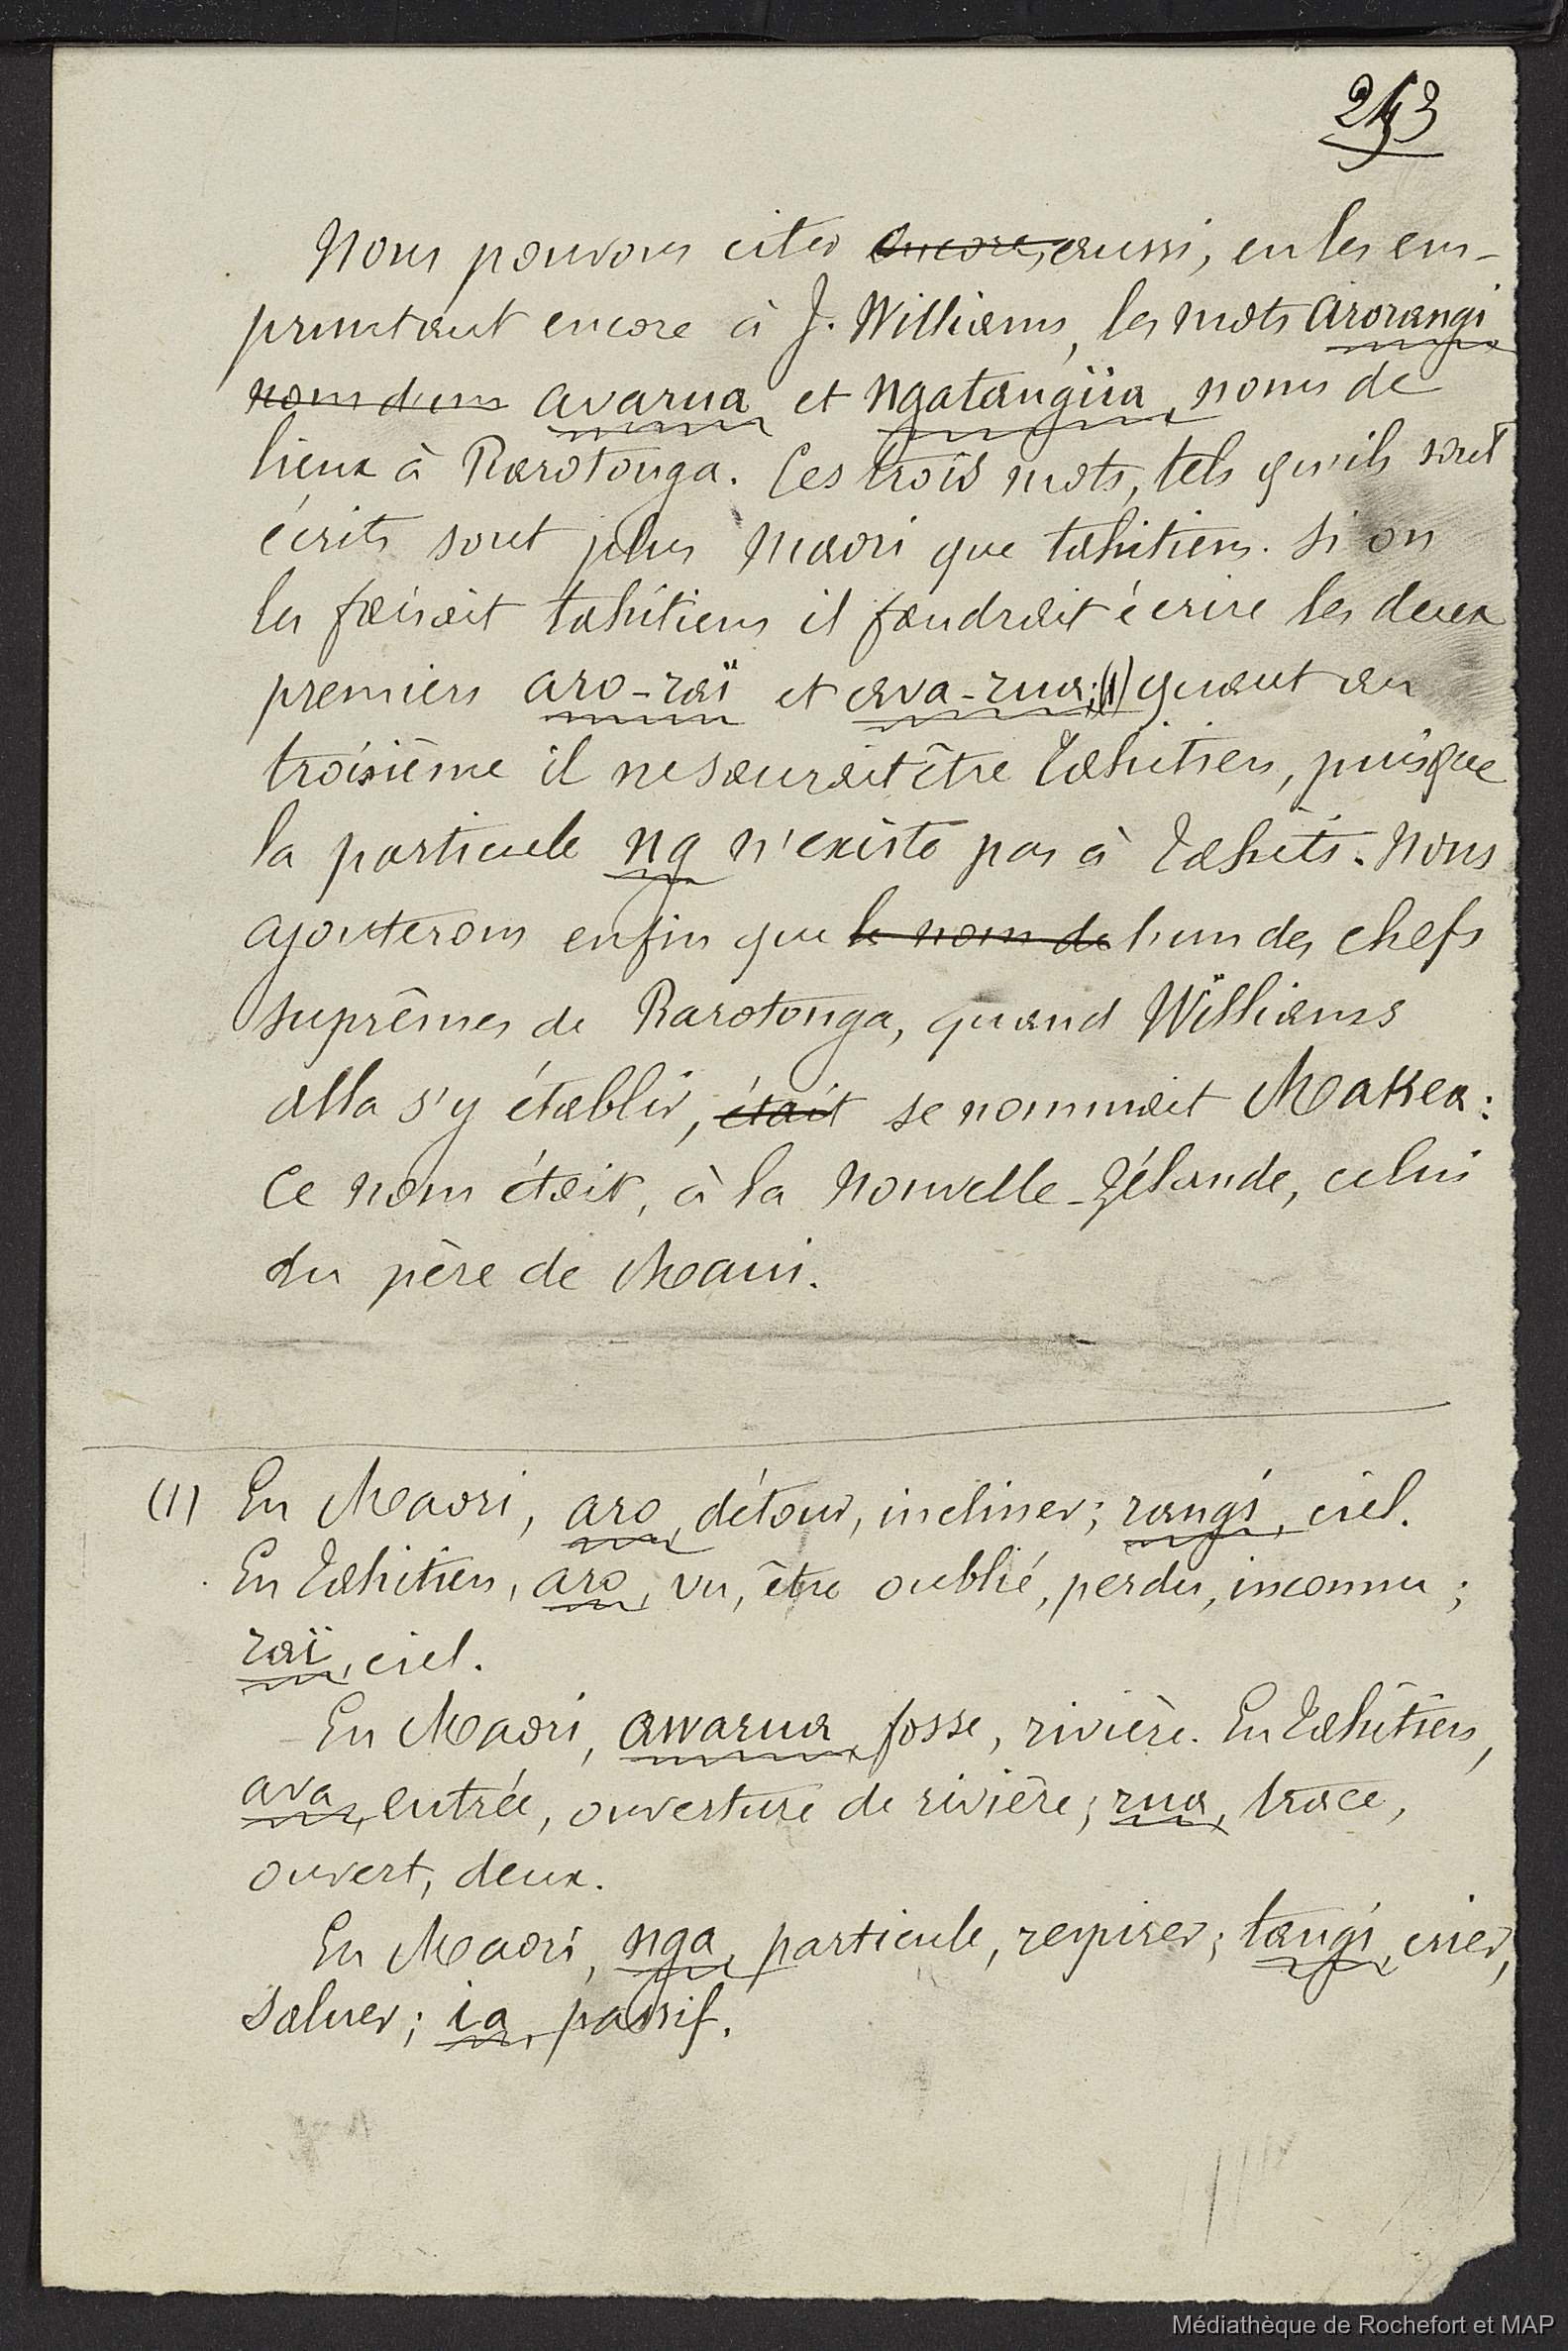 Nous pouvons citer encore, aussi, en les em-
pruntant encore à J. Williams, les mots Arorangi
nom d'un avarua et Ngatangiia, noms de
lieux à Rarotonga. Ces trois mots, tels qu'ils sont
écrits sont plus Maori que tahitiens. Si on
les faisait tahitiens il faudrait écrire les deux
premiers aro-raï et ava-rua; (1) quant au
troisième il ne saurait être Tahitien, puisque
la particule ng n'existe pas à Tahiti. Nous
ajouterons enfin que le nom de l'un des chefs
suprêmes de Rarotonga, quand Williams
alla s'y établir, était se nommait Makea:
Ce nom était, à la Nouvelle-Zélande, celui
du père de Maui.
(1) En Maori, aro, détour, incliner; rangi, ciel.
En Tahitien, aro, vu, être oublié, perdu, inconnu;
raï, ciel.
En Maori, awarua, fosse, rivière. En Tahitien,
ava, entrée, ouverture de rivière; rua, trace,
ouvert, deux.
En Maori, nga, particule, respirer; tangi, crier,
saluer; ia, passif.
Médiathèque de Rochefort et MAP